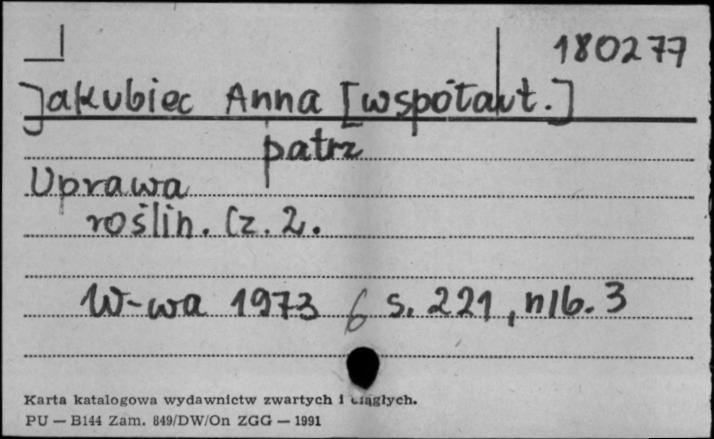 180277
Jakubiec Anna [współaut.]
patrz
Uprawa
roślin. Cz. 2.
W-wa 1973 6 s. 221, nlb. 3
Karta katalogowa wydawnictw zwartych i ciągłych.
PU — B144 Zam. 849/DW/On ZGG — 1991